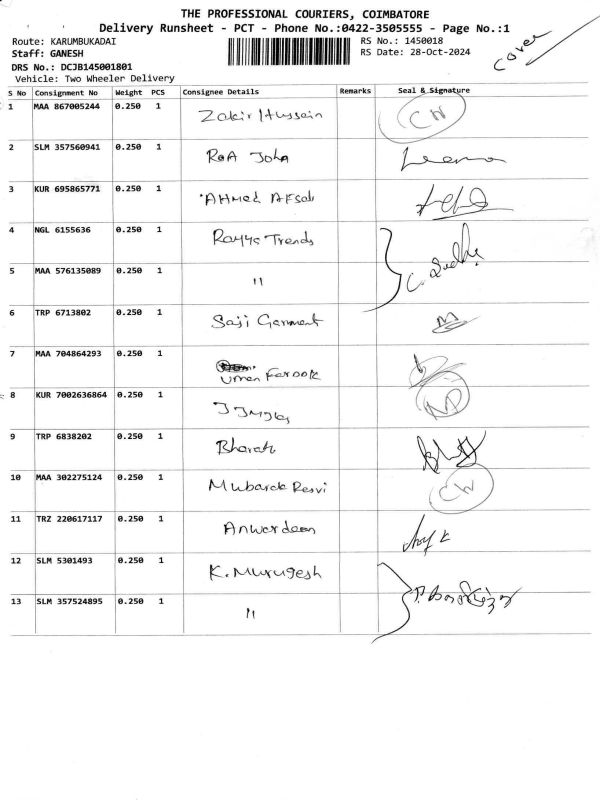 THE PROFESSIONAL COURIERS, COIMBATORE
Delivery Runsheet - PCT - Phone No.:0422-3505555 - Page No.:1
Route: KARUMBUKADAI
RS No.: 1450018
Staff: GANESH
RS Date: 28-Oct-2024
cover
DRS No.: DCJB145001801
Vehicle: Two Wheeler Delivery
S No Consignment No Weight PCS Consignee Details Remarks Seal & Signature
1 MAA 867005244 0.250 1 Zakir Hussain CW
2 SLM 357560941 0.250 1 Joha
3 KUR 695865771 0.250 1 AHMED AFSAL
4 NGL 6155636 0.250 1 Trends
5 MAA 576135089 0.250 1 "
6 TRP 6713802 0.250 1 Saji Garment
7 MAA 704864293 0.250 1 Farook
8 KUR 7002636864 0.250 1
9 TRP 6838202 0.250 1 Bharath
10 MAA 302275124 0.250 1 Mubarak Resvi CW
11 TRZ 220617117 0.250 1 Anwardeen
12 SLM 5301493 0.250 1 K. Murugesh
13 SLM 357524895 0.250 1 "